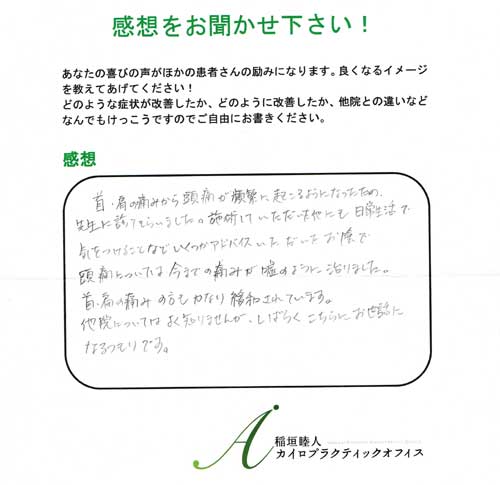 感想をお聞かせ下さい！
あなたの喜びの声がほかの患者さんの励みになります。良くなるイメージ
を教えてあげてください！
どのような症状が改善したか、どのように改善したか、他院との違いなど
なんでもけっこうですのでご自由にお書きください。
感想
首・肩の痛みから頭痛が頻繁に起こるようになったため、
先生に診てもらいました。施術していただいた他にも日常生活で
気をつけることなどいくつかアドバイスいただいたお陰で
頭痛については今までの痛みが嘘のように治りました。
首・肩の痛みのうもかなり緩和されています。
他院についてはよく知りませんが、しばらくこちらにお世話に
なるつもりです。
稲垣睦人
カイロプラクティックオフィス